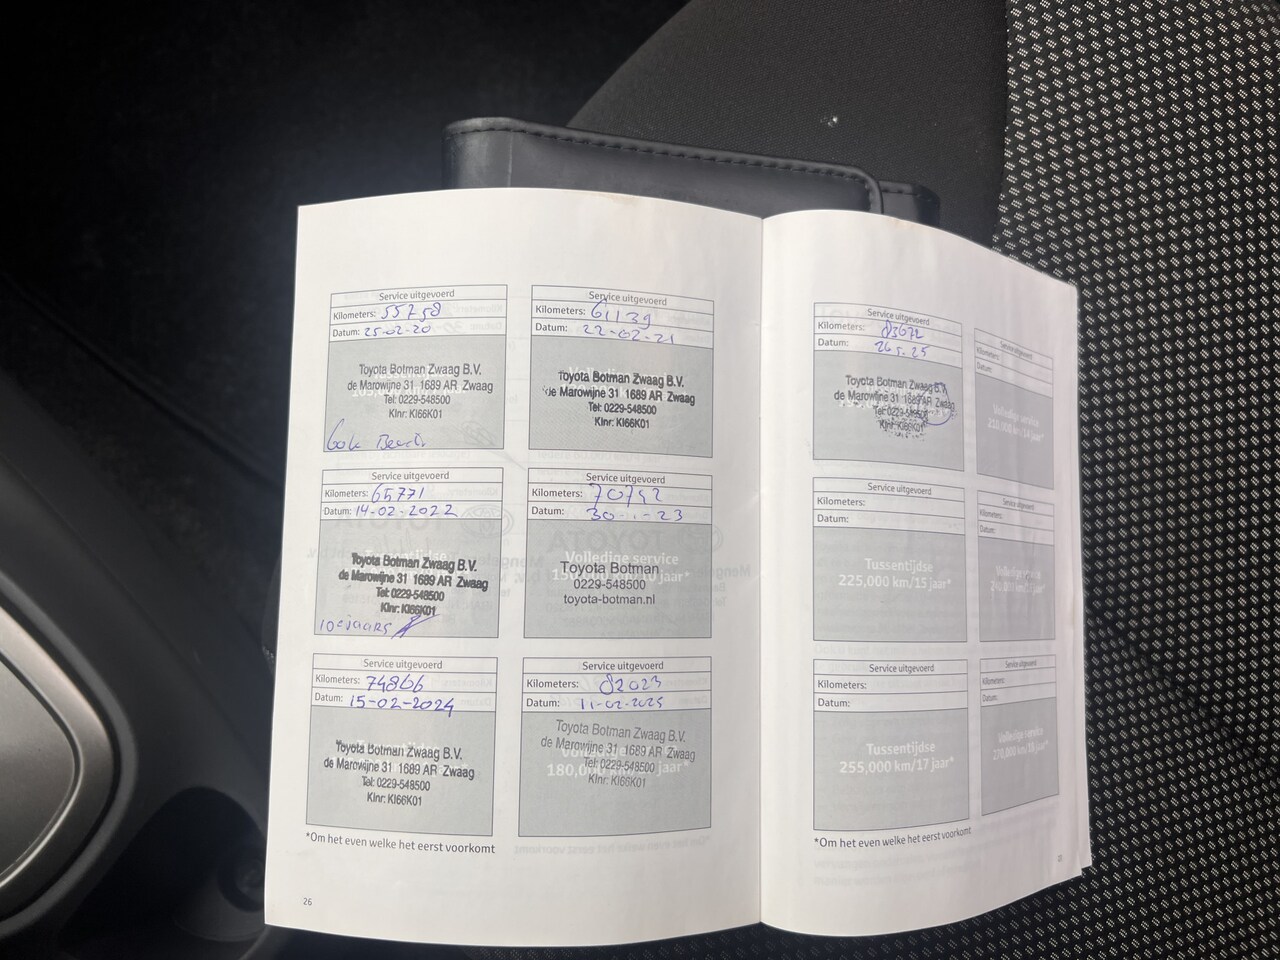 Service uitgevoerd
Kilometers: 55758
Datum: 25-02-20
Toyota Botman Zwaag B.V.
de Marowijne 31 1689 AR Zwaag
Tel: 0229-548500
Klnr: KI66K01
Service uitgevoerd
Kilometers: 61139
Datum: 22-02-21
Toyota Botman Zwaag B.V.
de Marowijne 31 1689 AR Zwaag
Tel: 0229-548500
Klnr: KI66K01
Service uitgevoerd
Kilometers: 65771
Datum: 14-02-2022
Toyota Botman Zwaag B.V.
de Marowijne 31 1689 AR Zwaag
Tel: 0229-548500
Klnr: KI66K01
Service uitgevoerd
Kilometers: 70792
Datum: 30-1-23
Volledige service
150,000 km/10 jaar*
Toyota Botman
0229-548500
toyota-botman.nl
Service uitgevoerd
Kilometers: 74866
Datum: 15-02-2024
Toyota Botman Zwaag B.V.
de Marowijne 31 1689 AR Zwaag
Tel: 0229-548500
Klnr: KI66K01
Service uitgevoerd
Kilometers: 82023
Datum: 11-02-2025
Toyota Botman Zwaag B.V.
de Marowijne 31 1689 AR Zwaag
Tel: 0229-548500
Klnr: KI66K01
180,000 km/
*Om het even welke het eerst voorkomt
26
Service uitgevoerd
Kilometers: 83672
Datum: 26-5-25
Toyota Botman Zwaag B.V.
de Marowijne 31 1689 AR Zwaag
Tel: 0229-548500
Klnr: KI66K01
Service uitgevoerd
Kilometers:
Datum:
Volledige service
210,000 km/14 jaar*
Service uitgevoerd
Kilometers:
Datum:
Tussentijdse
225,000 km/15 jaar*
Service uitgevoerd
Kilometers:
Datum:
Volledige service
240,000 km/16 jaar*
Service uitgevoerd
Kilometers:
Datum:
Tussentijdse
255,000 km/17 jaar*
Service uitgevoerd
Kilometers:
Datum:
Volledige service
270,000 km/18 jaar*
*Om het even welke het eerst voorkomt